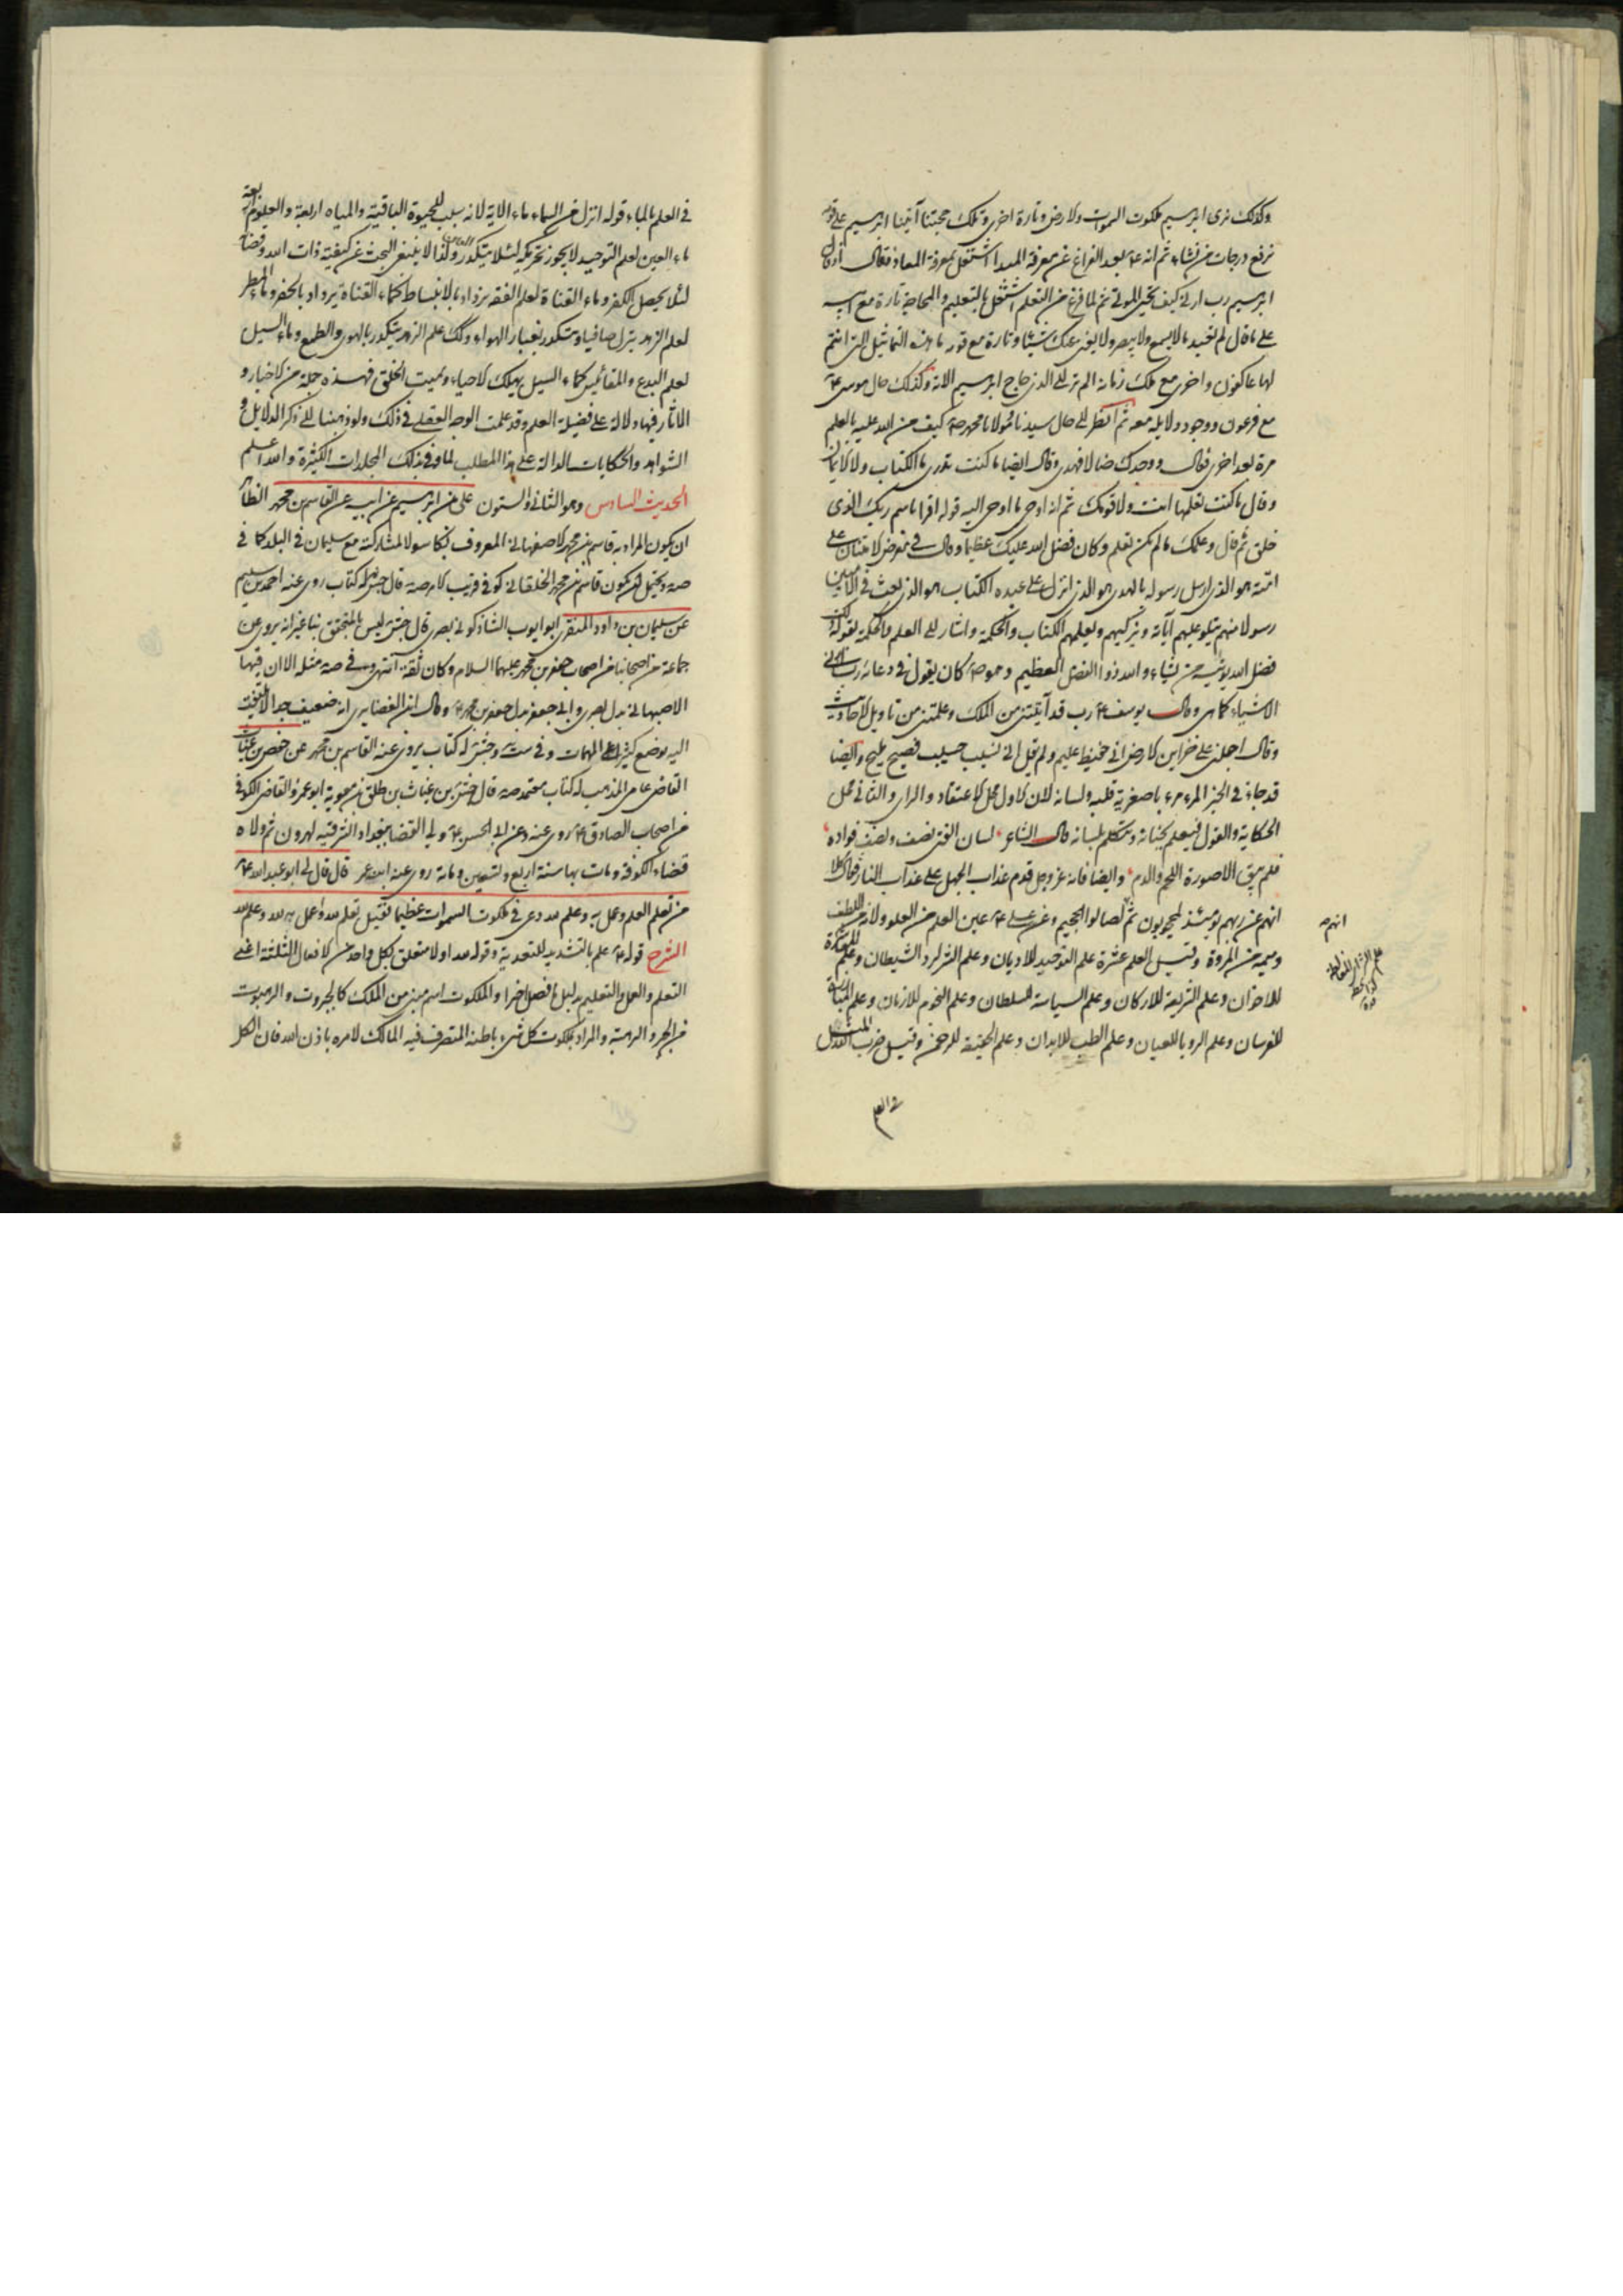 وكذلك نرى ابرهيم ملكوت السموات والارض وتارة اخرى وتلك حجتنا آتينا ابرهيم على قومه
نرفع درجات من نشاء ثم انه ع بعد الفراغ عن معرفة المبدا اشتغل بمعرفة المعاد فقال اذ قال
ابرهيم رب ارنى كيف تحيى الموتى ثم لما فرغ من التعلم اشتغل بالتعليم والمحاجة تارة مع ابيه
على ما قال لم تعبد ما لا يسمع ولا يبصر ولا يغنى عنك شيئا وتارة مع قومه ما هذه التماثيل التى انتم
لها عاكفون واخرى مع ملك زمانه الم تر الى الذى حاج ابرهيم الاية وكذلك حال موسى ع
مع فرعون ووجوه دلايله معه ثم انظر الى حال سيدنا ومولانا محمد ص كيف من الله عليه بالعلم
مرة بعد اخرى فقال ووجدك ضالا فهدى وقال ايضا ما كنت تدرى ما الكتاب ولا الايمان
وقال ما كنت تعلمها انت ولا قومك ثم انه اوحى ما اوحى اليه قوله اقرا باسم ربك الذى
خلق ثم قال وعلمك ما لم تكن تعلم وكان فضل الله عليك عظيما وقال فى معرض الامتنان على
امته هو الذى ارسل رسوله بالهدى هو الذى انزل على عبده الكتاب هو الذى بعث فى الاميين
رسولا منهم يتلو عليهم آياته ويزكيهم ويعلمهم الكتاب والحكمة واشار الى العلم والحكمة بقوله ذلك
فضل الله يؤتيه من يشاء والله ذو الفضل العظيم وهو ص كان يقول فى دعائه رب ارنى
الاشياء كما هى وقال يوسف ع رب قد آتيتنى من الملك وعلمتنى من تاويل الاحاديث
وقال اجعلنى على خزاين الارض انى حفيظ عليم ولم يقل انى نسيب حسيب فصيح مليح وايضا
قد جاء فى الخبر المرء مرء باصغريه قلبه ولسانه لان الاول محل الاعتقاد والراى والثانى محل
الحكاية والقول فيعلم بجنانه ويتكلم بلسانه قال الشاعر لسان الفتى نصف ونصف فواده
فلم يبق الا صورة اللحم والدم وايضا فانه عز وجل قدم عذاب الجهل على عذاب النار فقال كلا
انهم عن ربهم يومئذ لمحجوبون ثم لصالوا الجحيم وعن على ع عين العلم من العلو ولامه من اللطف
وميمه من المروة وقيل العلم عشرة علم التوحيد للاديان وعلم السر لرد الشيطان وعلم المعاشرة
للاخوان وعلم الشريعة للاركان وعلم السياسة للسلطان وعلم النجوم للازمان وعلم المبارزة
للفرسان وعلم الرويا للعيان وعلم الطب للابدان وعلم الحقيقة للرحمن وقيل ضرب المثل
فى العلم
انهم
فى العلم بالماء قوله انزل من السماء ماء الاية لانه سبب للحيوة الباقية والمياه اربعة والعلوم اربعة
ماء العين لعلم التوحيد لا يجوز تحريكه لئلا يتكدر ولذا لا ينبغى البحث عن كيفية ذات الله وقضائه
لئلا يحصل الكفر وماء القناة لعلم الفقه يزداد بالانبساط كماء القناة يزداد بالحفر وماء المطر
لعلم الزهد ينزل صافيا ويتكدر بغبار الهواء وكذلك علم الزهد يتكدر بالهوى والطمع وماء السيل
لعلم البدع والمقاييس كماء السيل يهلك الاحياء ويميت الخلق فهذه جملة من الاخبار و
الاثار فيها دلالة على فضيلة العلم وقد علمت الوجه العقلى فى ذلك ولو ذهبنا الى ذكر الدلايل و
الشواهد والحكايات الدالة على هذا المطلب لما وفى بذلك المجلدات الكثيرة والله اعلم
الحديث السادس وهو الثانى والستون على بن ابرهيم عن ابيه عن القاسم بن محمد الظاهر
ان يكون المراد به قاسم بن محمد الاصفهانى المعروف بكاسولا لمشاركته مع سليمان فى البلد كما فى
صه ويحتمل ان يكون قاسم بن محمد الخلقانى كوفى قريب الامر صه قال جش له كتاب روى عنه احمد بن ميثم
عن سليمان بن داود المنقرى ابو ايوب الشاذكونى بصرى قال جش ليس بالمتحقق بنا غير انه يروى عن
جماعة من اصحابنا من اصحاب جعفر بن محمد عليهما السلام وكان ثقة انتهى وفى صه مثله الا ان فيها
الاصبهانى بدل بصرى وابى جعفر بدل جعفر بن محمد ع وقال ابن الغضايرى انه ضعيف جدا لا يلتفت
اليه يوضع كثيرا على المهمات وفى ست وجش له كتاب يروى عنه القاسم بن محمد عن حفص بن غياث
القاضى عامى المذهب له كتاب معتمد صه قال جش بن غياث بن طلق بن معوية ابو عمر القاضى الكوفى
من اصحاب الصادق ع روى عنه وعن ابى الحسن ع ولى القضا ببغداد الشرقية لهرون ثم ولاه
قضاء الكوفة ومات بها سنة اربع وتسعين ومائة روى عنه ابنه عمر قال قال لى ابو عبد الله ع
من تعلم العلم وعمل به وعلم لله دعى فى ملكوت السموات عظيما فقيل تعلم لله وعمل لله وعلم لله
الشرح قوله ع علم بالتشديد للتعدية وقوله لله اولا متعلق بكل واحد من الافعال الثلثة اعنى
التعلم والعمل والتعليم بدليل ما فصل اخيرا والملكوت اسم مبنى من الملك كالجبروت والرهبوت
من الجبر والرهبة والمراد بملكوت كل شىء باطنه المتصرف فيه المالك لامره باذن الله فان لكل